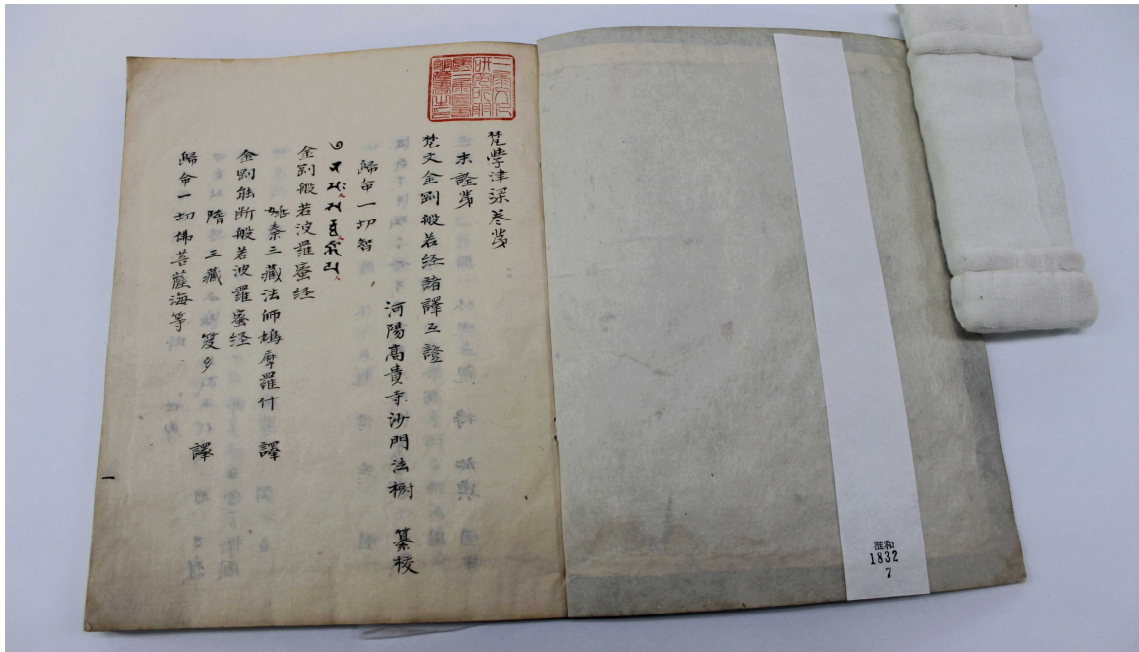 梵學津梁巻第
末詮第
梵文金剛般若経諸譯互證
河陽高貴寺沙門法樹 纂校
歸命一切智
金剛般若波羅蜜経
姚秦三藏法師鳩摩羅什 譯
金剛能断般若波羅蜜経
隋 三藏 笈多 譯
歸命一切佛菩薩海等
雑和
1832
7